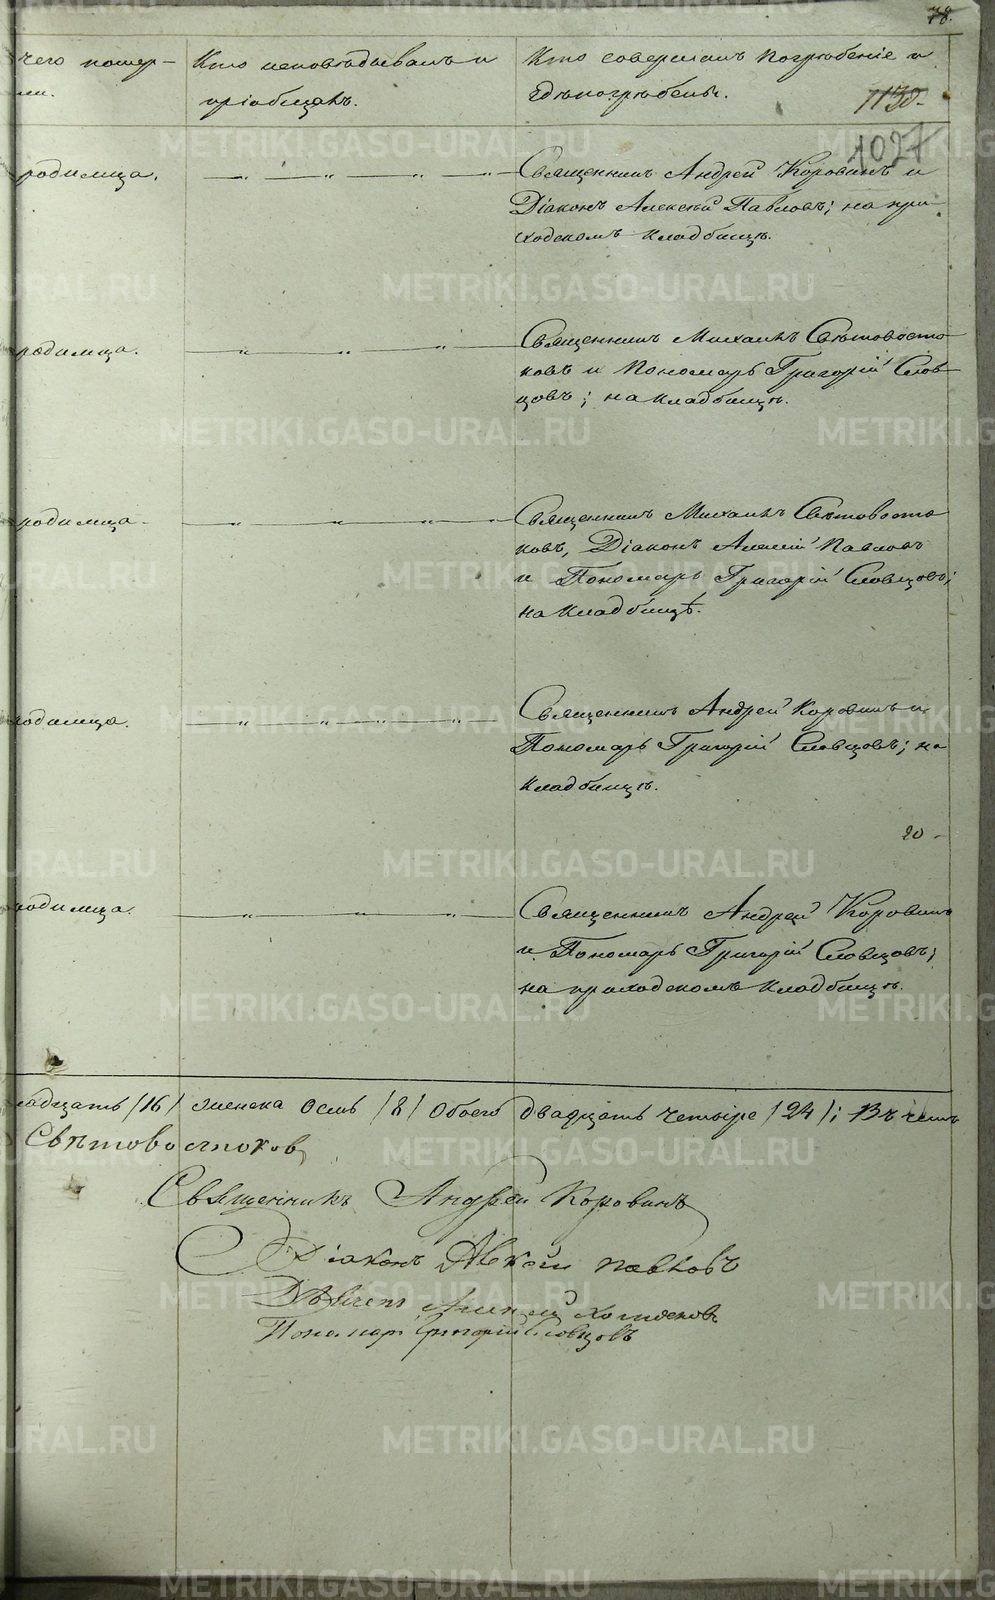 78.
чего помер-
ли.
Кто исповѣдывалъ и
пріобщалъ.
Кто совершалъ погребеніе и
гдѣ погребены.
1138.
1027
родимца.
Священникъ Андрей Коровинъ и
Діаконъ Алексѣй Павловъ; на при-
ходскомъ кладбищѣ.
родимца.
Священникъ Михаилъ Свѣтовосто-
ковъ и Пономарь Григорій Слов-
цовъ; на кладбищѣ.
родимца.
Священникъ Михаилъ Свѣтовосто-
ковъ, Діаконъ Алексій Павловъ
и Пономарь Григорій Словцовъ;
на кладбищѣ.
родимца.
Священникъ Андрей Коровинъ и
Пономарь Григорій Словцовъ; на
кладбищѣ.
20
родимца.
Священникъ Андрей Коровинъ
и Пономарь Григорій Словцовъ;
на приходскомъ кладбищѣ.
надцать /16/ женска осмь /8/ обоего двадцать четыре /24/; Въ чемъ
Свѣтовостоков
Священникъ Андрей Коровинъ
Діаконъ Алексѣй Павловъ
Дьячекъ Алексѣй
Пономарь Григорій Словцовъ
METRIKI.GASO-URAL.RU